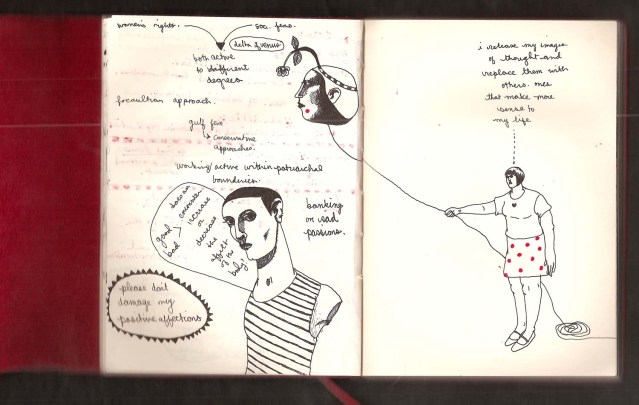 women's rights.
soc. fems.
delta of venus
both active
to different
degrees
foucaultian approach.
gulf fem
↳ conservative
approaches.
working/active within patriarchal
bounderies.
does an
encounter
good
bad > increase
or
decrease
the
affect
of the
body?
banking
on sad
passions.
please don't
damage my
positive affections
i release my images
of thought and
replace them with
others. ones
that make more
sense to
my life